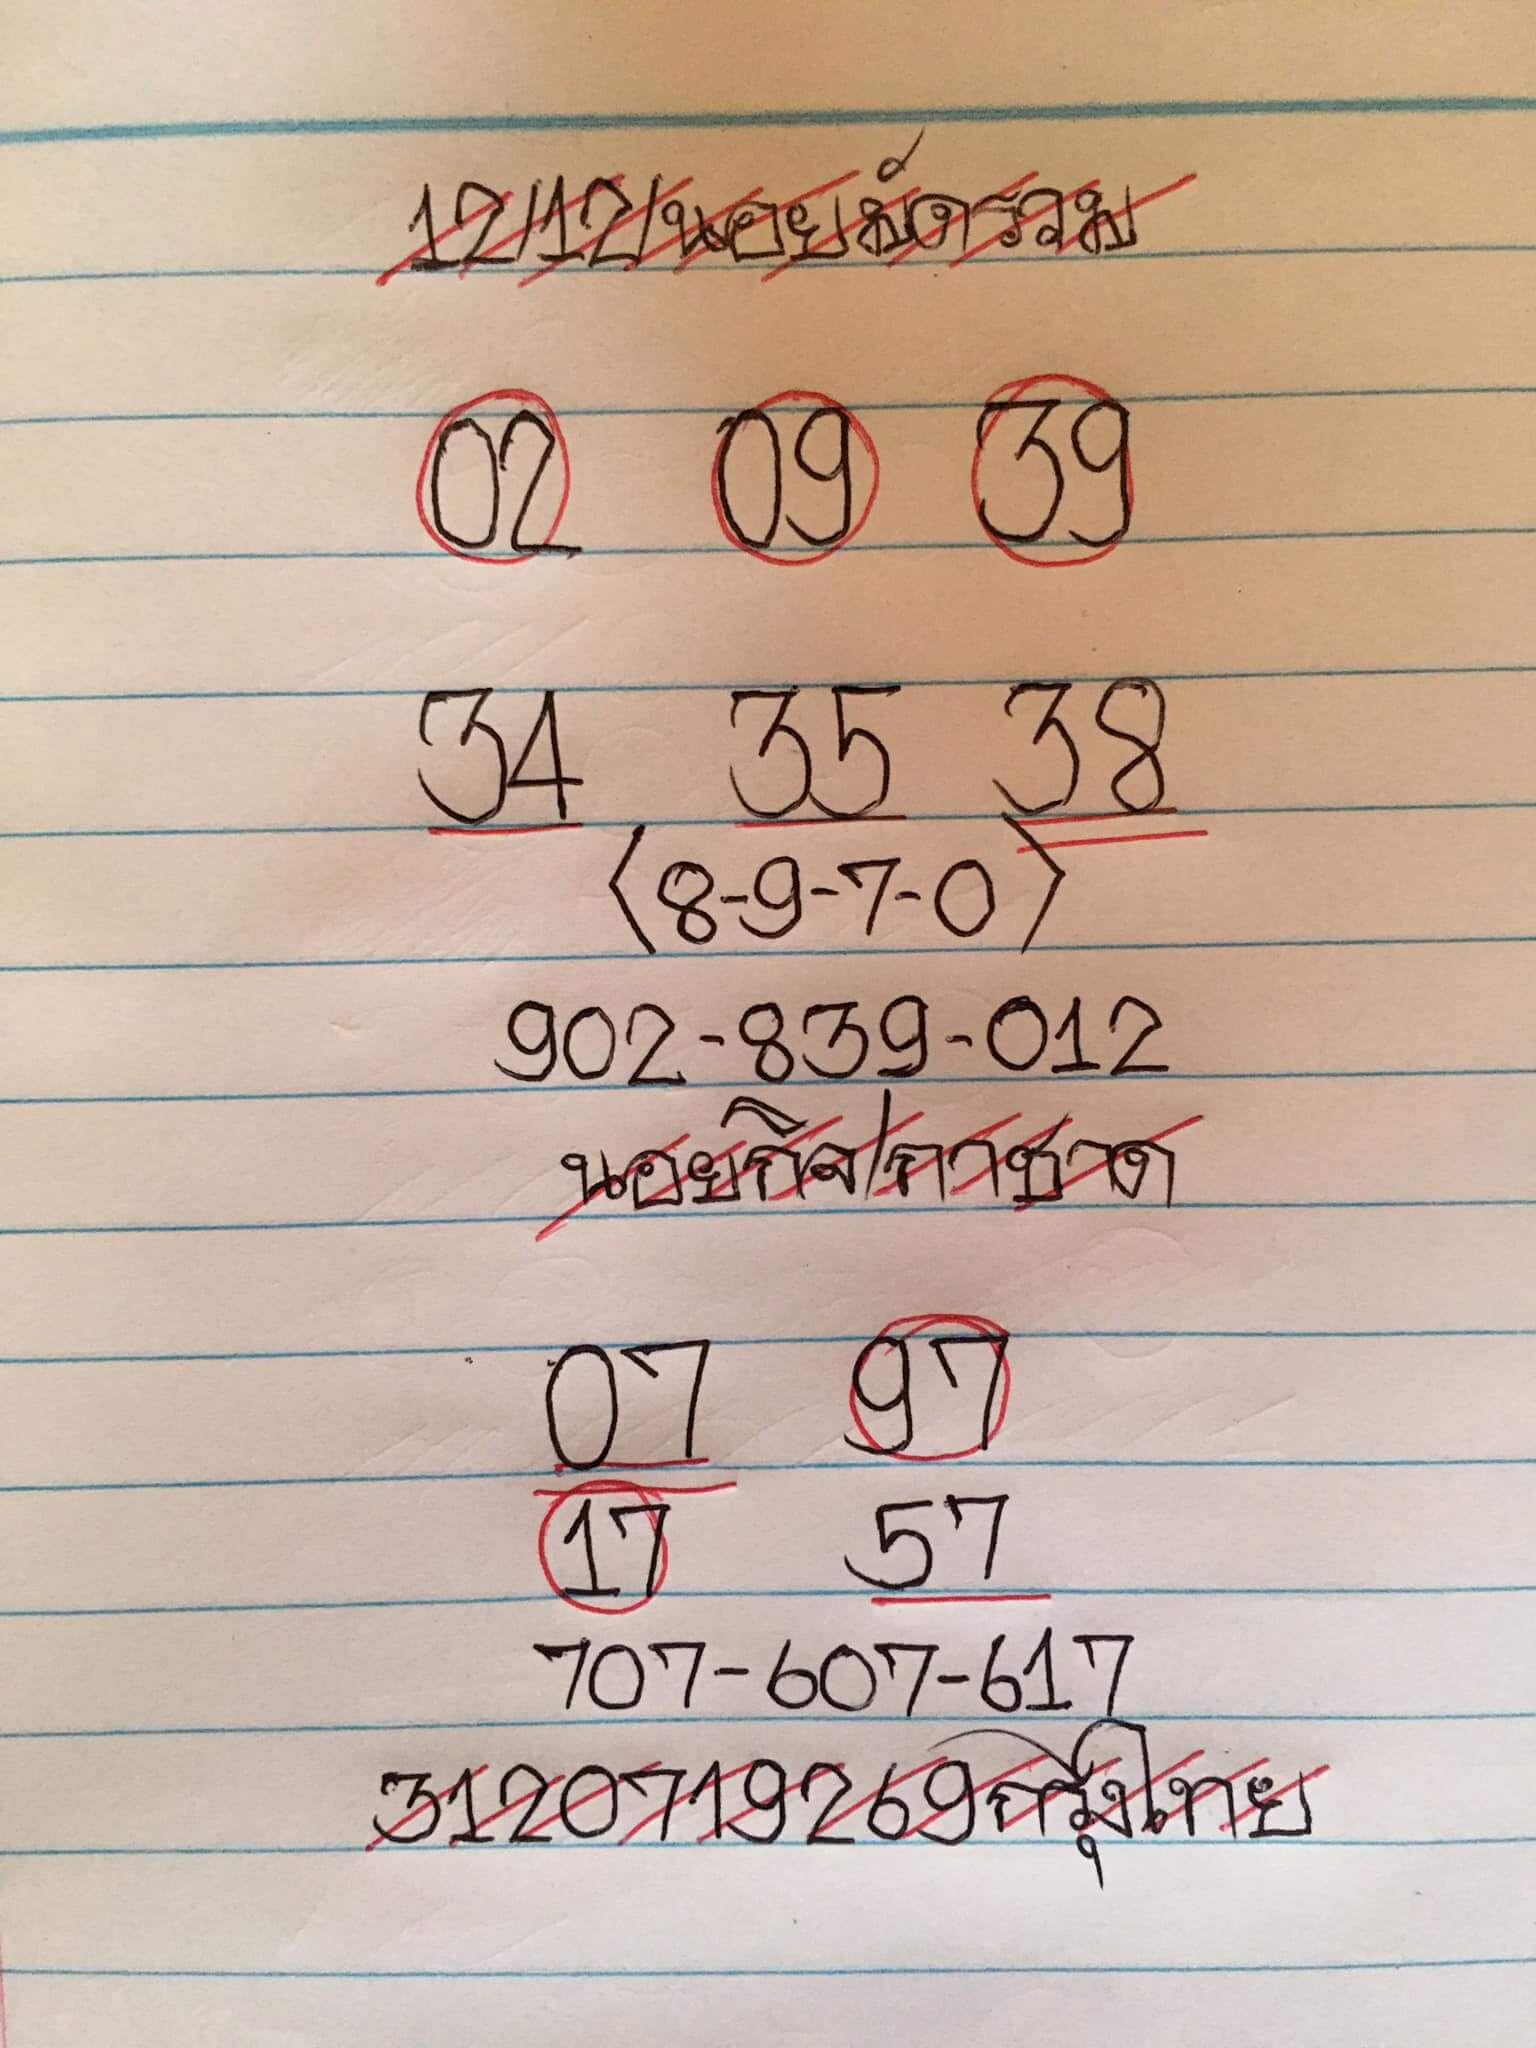 12/12/นอยมัดรวม
02 09 39
34 35 38
〈8-9-7-0〉
902-839-012
นอยกิจ/กาชาด
07 97
17 57
707-607-617
3120719269กรุงไทย